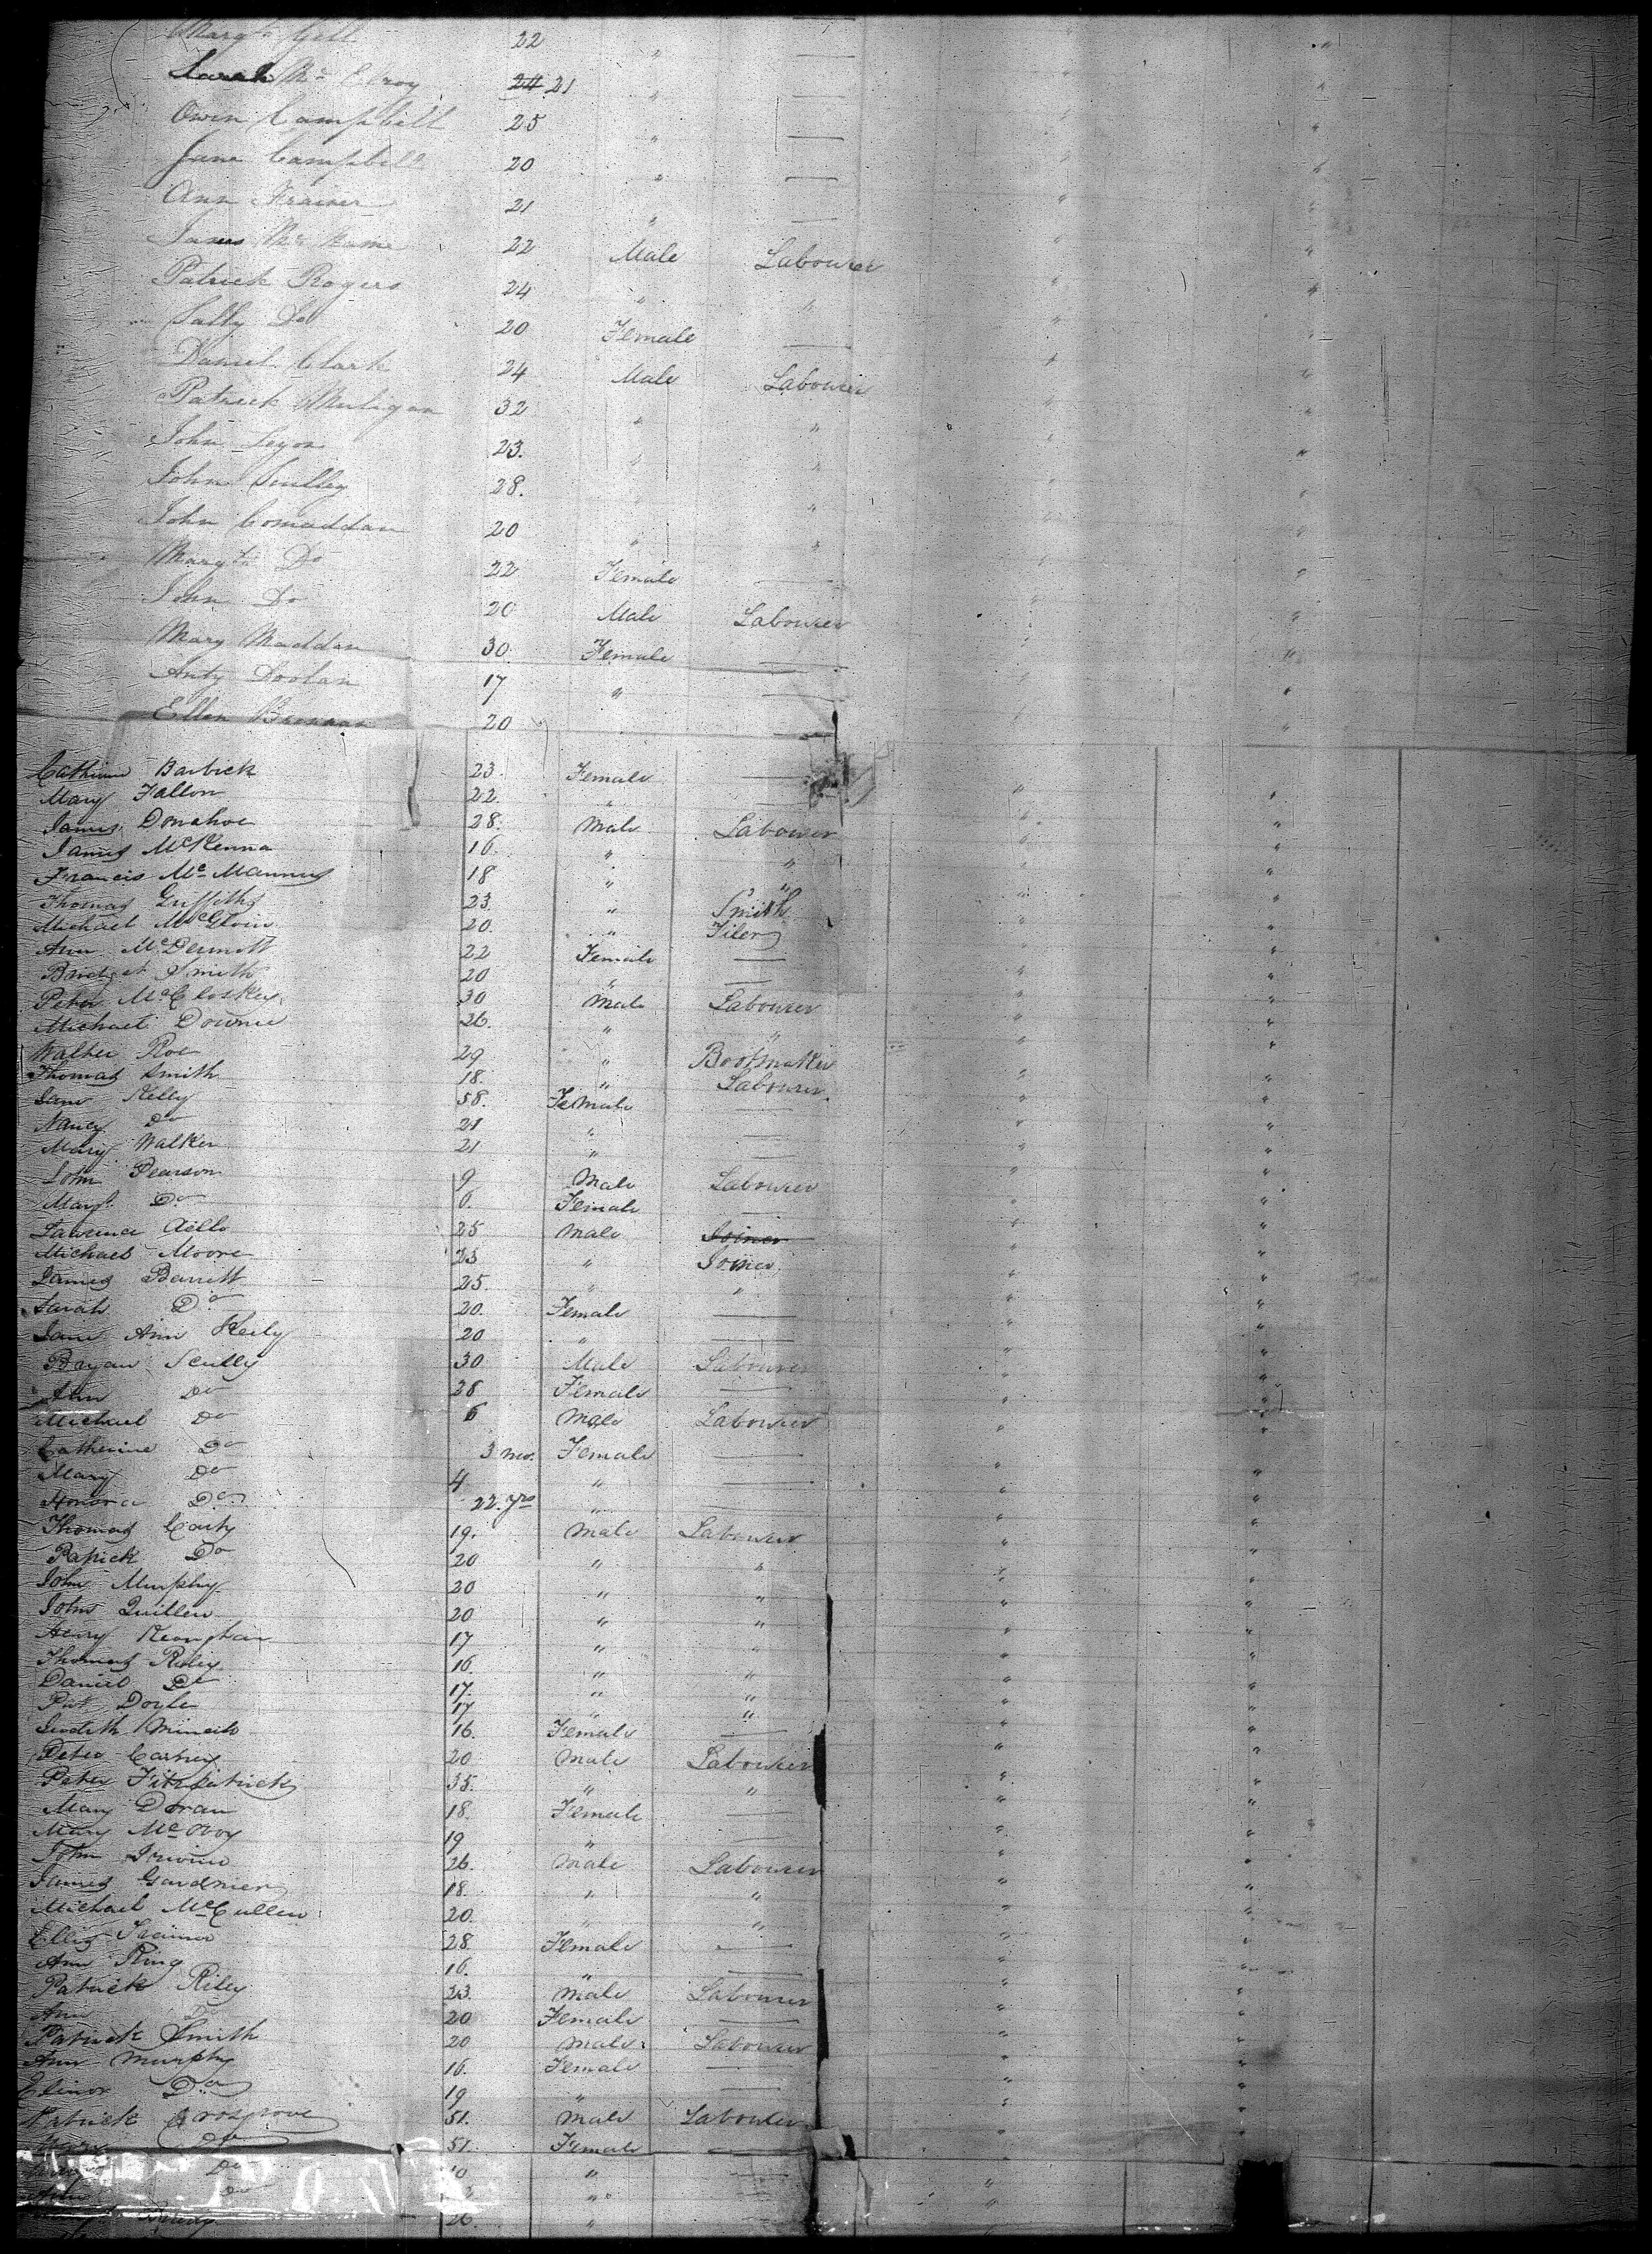 Margt Gill 22 " —
Sarah Mc Elroy 24 21 " —
Owen Campbell 25 " —
Jane Campbell 20 " —
Ann Frainer 21 " —
James Mc 22 Male Labourer
Patrick Rogers 24 " "
Sally Do 20 Female —
Daniel Clark 24 Male Labourer
Patrick Muligan 32 " "
John 23. " "
John Sculley 28. " "
John Comaddan 20 " "
Margt Do 22 Female —
John Do 20 Male Labourer
Mary Maddan 30. Female —
Anty Doolan 17 " —
Ellen Brennan 20 —
Catherine Barbick 23. Female —
Mary Fallon 22. " —
James Donahoe 28. Male Labourer
James McKenna 16. " "
Francis Mc Mannus 18 " "
Thomas Griffiths 23. " Smith
Michael McGloin 20. " Tiler
Ann McDermott 22 Female —
Bridget Smith 20 " —
Peter McCloskey 30 Male Labourer
Michael Downie 26. " "
Walter Roe 29 " Bootmaker
Thomas Smith 18. " Labourer
Jane Kelly 58. Female —
Nancy Do 21 " —
Mary Walker 21 " —
John Pearson 9 Male Labourer
Margt Do 6. Female —
Lawrence 25 Male Joiner
Michael Moore 23 " Joiner
James Barrett 25. " "
Sarah Do 20. Female —
Jane Ann Kelly 20 " —
Bryan Scully 30 Male Labourer
Ann Do 28 Female —
Michael Do 6 Male Labourer
Catherine Do 3 mo. Female —
Mary Do 4 " —
Honora Do 22. yrs " —
Thomas Carty 19. Male Labourer
Patrick Do 20 " "
John Murphy 20 " "
John Quillen 20 " "
Henry Keonghan 17 " "
Thomas Riley 16. " "
Daniel Do 17. " "
Pat Doyle 17 " "
Judith 16. Female —
Peter 20 Male Labourer
Peter Fitzpatrick 35. " "
Mary Doran 18. Female —
Mary McAvoy 19 " —
John Irvine 26. Male Labourer
James Gardner 18. " "
Michael McCullen 20. " "
Ellis Trainer 28. Female —
Ann King 16. " —
Patrick Riley 23. Male Labourer
Ann Do 20 Female —
Patrick Smith 20 Male Labourer
Ann Murphy 16. Female —
Elinor Do 19 " —
Patrick Crosgrove 51. Male Labourer
Do 51. Female —
Do 10 " —
Ann Do " —
26 "